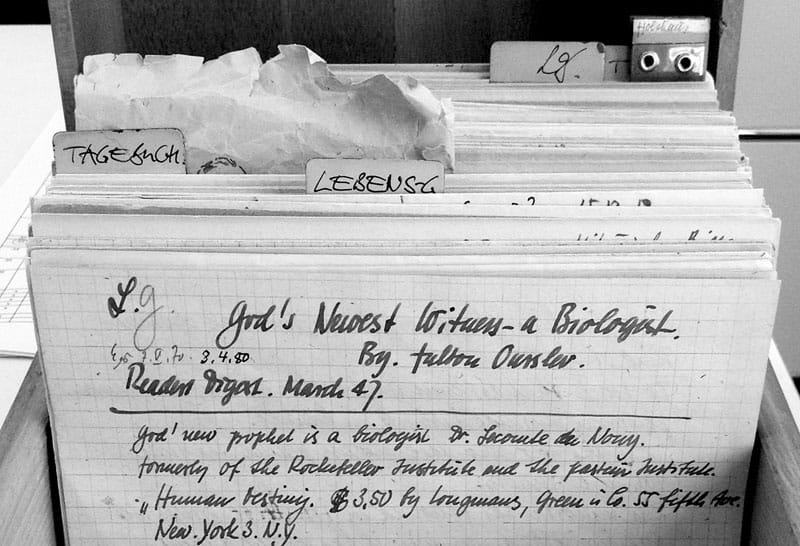 Lg.
TAGEBUCH.
LEBENS-G
L.g.
God's Newest Witness - a Biologist.
3.4.80
By. Fulton Oursler.
Readers Digest. March 47.
God' new prophet is a biologist Dr. Lecomte du Nouy.
formerly of the Rockefeller Institute and the Pasteur Institute.
„Human Destiny. $3,50 by Longmans, Green & Co. 55 fifth Ave.
New York 3. N.Y.